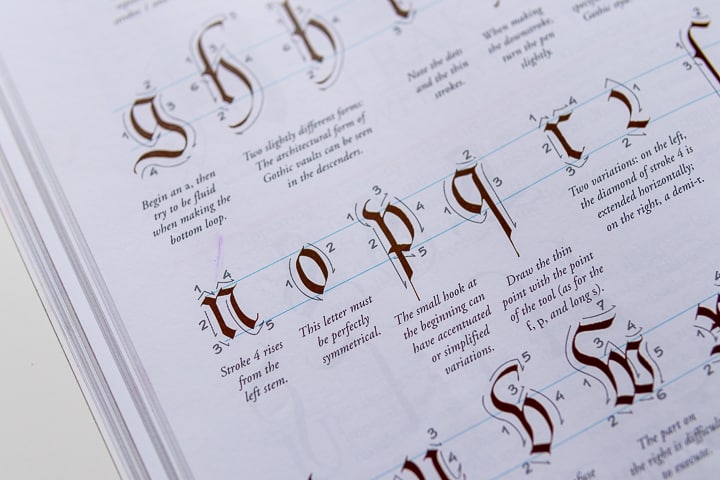 Note the dots
and the thin
strokes.
When making
the downstroke,
turn the pen
slightly.
g h h
Begin an a, then
try to be fluid
when making the
bottom loop.
Two slightly different forms:
The architectural form of
Gothic vaults can be seen
in the descenders.
n o p q r
Stroke 4 rises
from the
left stem.
This letter must
be perfectly
symmetrical.
The small hook at
the beginning can
have accentuated
or simplified
variations.
Draw the thin
point with the point
of the tool (as for the
f, p, and long s).
Two variations: on the left,
the diamond of stroke 4 is
extended horizontally;
on the right, a demi-r.
The part on
the right is difficult
to execute.